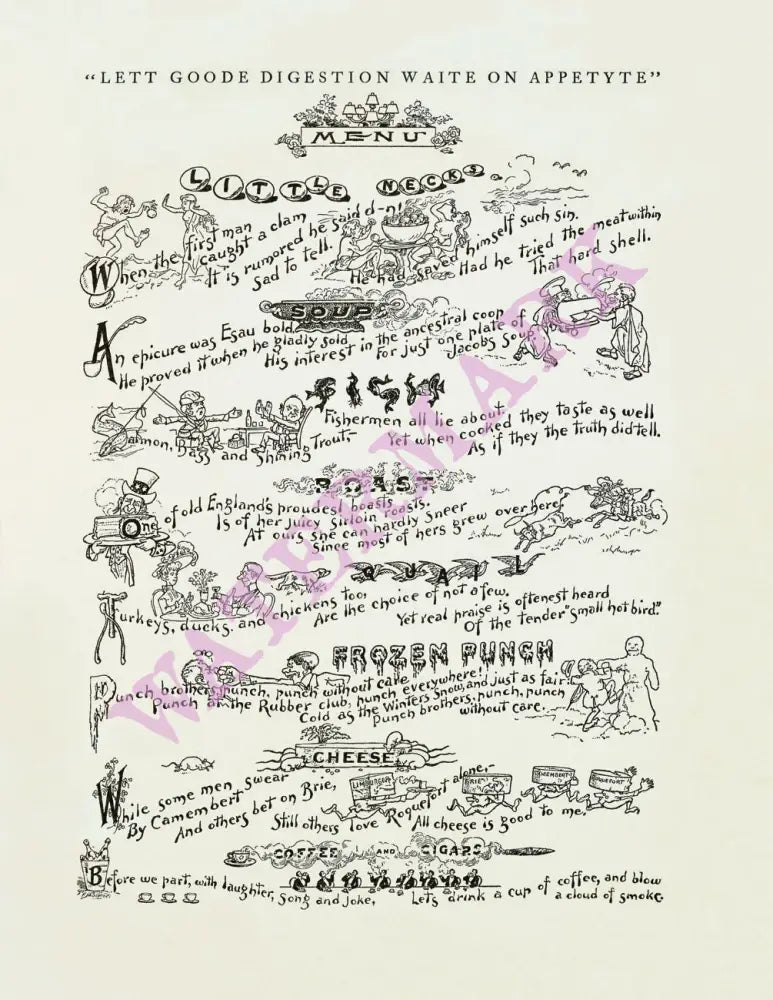 “LETT GOODE DIGESTION WAITE ON APPETYTE”
MENU
LITTLE NECKS
When the first man
caught a clam
It is rumored he said d-n!
Sad to tell.
He had saved himself such sin.
If
Had he tried the meat within
That hard shell.
SOUP
An epicure was Esau bold
He proved it when he gladly sold
His interest in the ancestral coop
For just one plate of
Jacobs Soup
FISH
Salmon, Bass and Shining Trout,-
Fishermen all lie about.
Yet when cooked they taste as well
As if they the truth did tell.
ROAST
One of old England's proudest boasts
Is of her juicy sirloin roasts.
At ours she can hardly sneer
Since most of hers grew over here
QUAIL
Turkeys, ducks, and chickens too,
Are the choice of not a few.
Yet real praise is oftenest heard
Of the tender "small hot bird."
FROZEN PUNCH
Punch brothers, punch, punch without care
Punch at the Rubber club, punch everywhere!
Cold as the Winters Snow, and just as fair.
Punch brothers, punch, punch
without care.
CHEESE
While some men swear
By Camembert
And others bet on Brie,
Still others love Roquefort alone,-
All cheese is good to me.
LIMBURGER
BRIE
CAMEMBERT
ROQUEFORT
COFFEE AND CIGARS
Before we part, with laughter, song and joke,
Lets drink a cup of coffee, and blow
a cloud of smoke.
WATERMARK